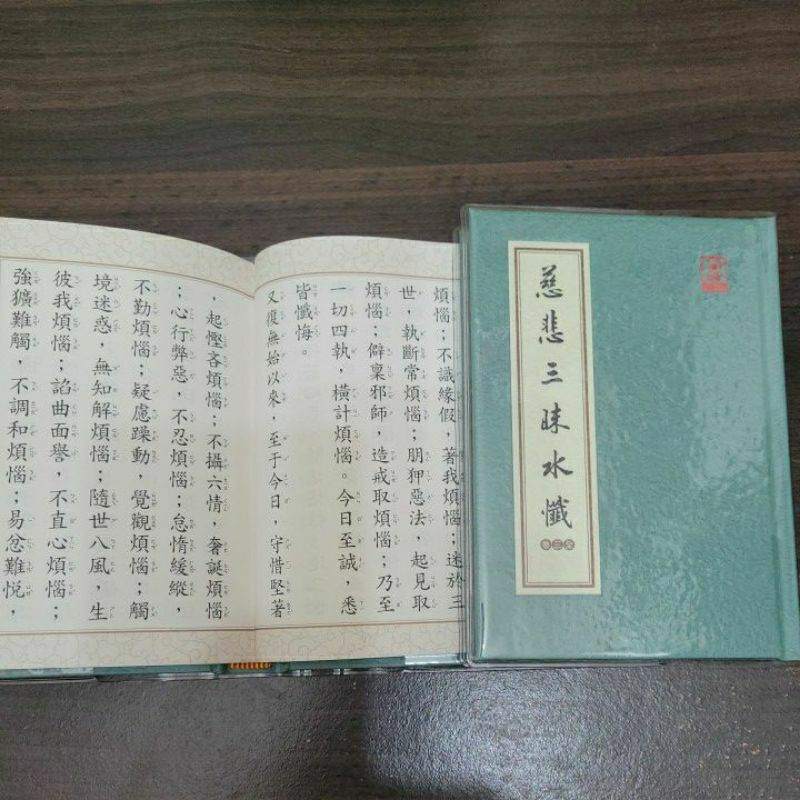 慈悲三昧水懺
卷三全
煩惱；不識緣假，著我煩惱；迷於三
世，執斷常煩惱；朋狎惡法，起見取
煩惱；僻稟邪師，造戒取煩惱；乃至
一切四執，橫計煩惱。今日至誠，悉
皆懺悔。
又復無始以來，至于今日，守惜堅著
，起慳吝煩惱；不攝六情，奢誕煩惱
；心行弊惡，不忍煩惱；怠惰緩縱，
不勤煩惱；疑慮躁動，覺觀煩惱；觸
境迷惑，無知解煩惱；隨世八風，生
彼我煩惱；諂曲面譽，不直心煩惱；
強獷難觸，不調和煩惱；易忿難悅，